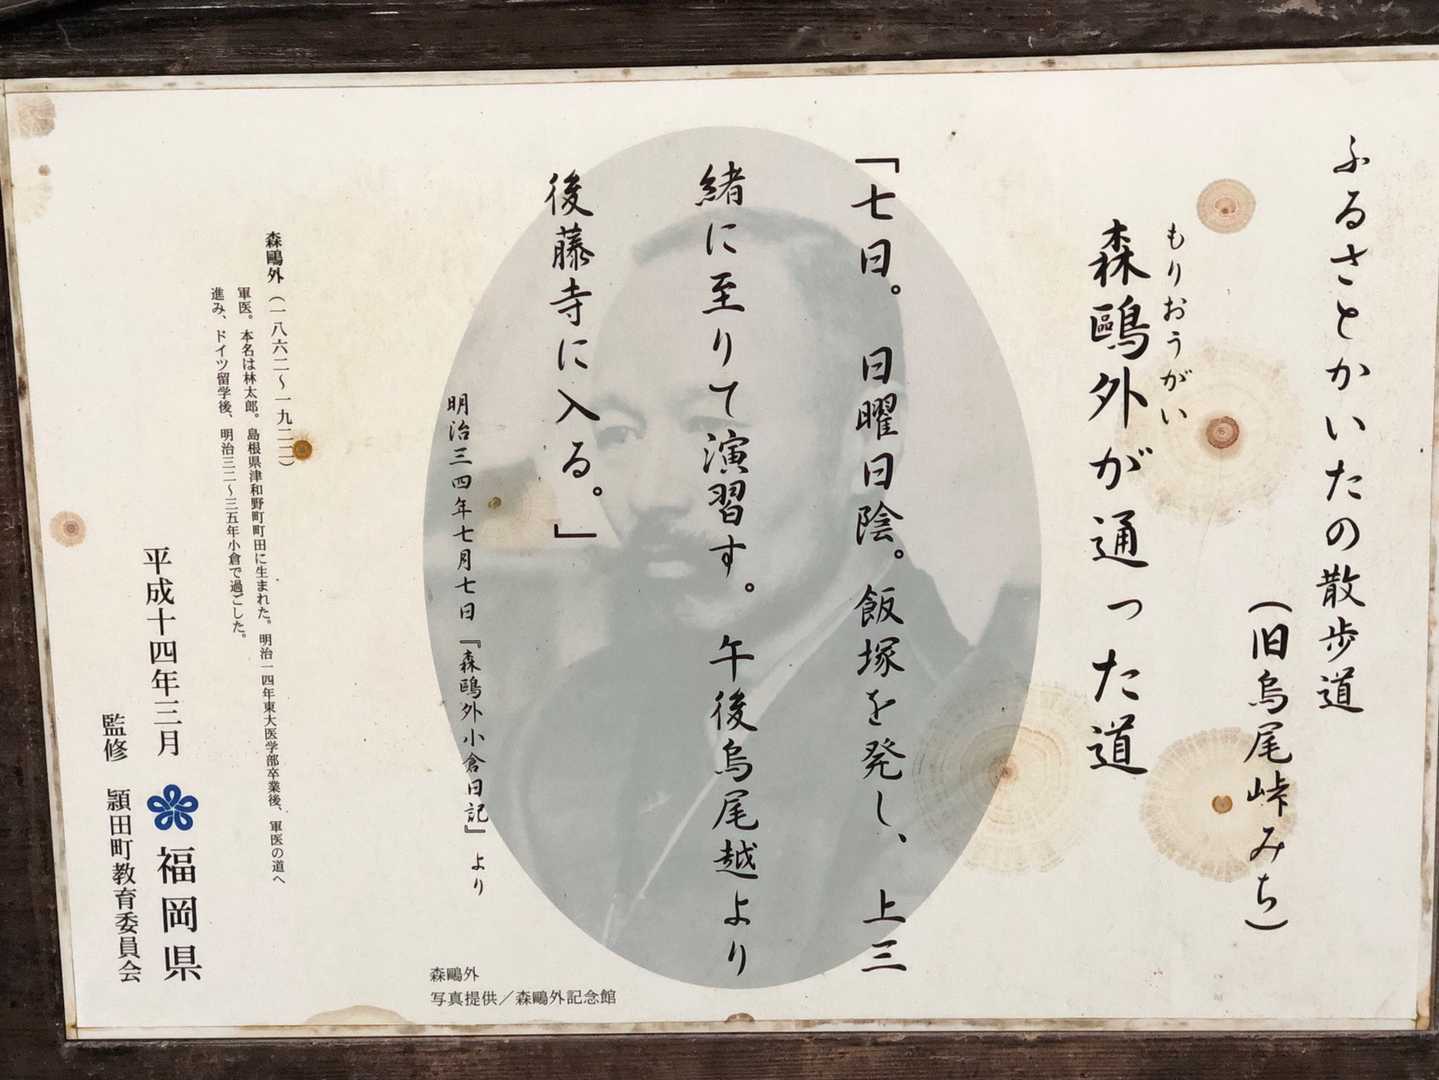 ふるさとかいたの散歩道
（旧烏尾峠みち）
もりおうがい
森鷗外が通った道
「七日。日曜日陰。飯塚を発し、上三
緒に至りて演習す。午後烏尾越より
後藤寺に入る。」
明治三四年七月七日『森鷗外小倉日記』より
森鷗外（一八六二～一九二二）
軍医。本名は林太郎。島根県津和野町町田に生まれた。明治一四年東大医学部卒業後、軍医の道へ
進み、ドイツ留学後、明治三二～三五年小倉で過ごした。
平成十四年三月 福岡県
監修 頴田町教育委員会
森鷗外
写真提供／森鷗外記念館